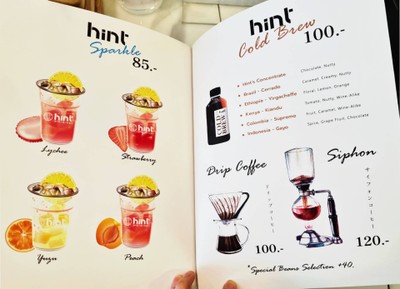 hint
Sparkle
85.-
hint
Lychee
hint
Strawberry
hint
Yuzu
hint
Peach
hint
Cold Brew 100.-
Hint's Concentrate
Brazil - Cerrado
Ethiopia - Yirgacheffe
Kenya - Kiandu
Colombia - Supremo
Indonesia - Gayo
Chocolate, Nutty
Caramel, Creamy, Nutty
Floral, Lemon, Orange
Tomato, Nutty, Wine-Alike
Fruit, Caramel, Wine-Alike
Spice, Grape Fruit, Chocolate
COLD
BREW
Drip Coffee
ドリップコーヒー
100.-
Siphon
サイフォンコーヒー
120.-
*Special Beans Selection +40.